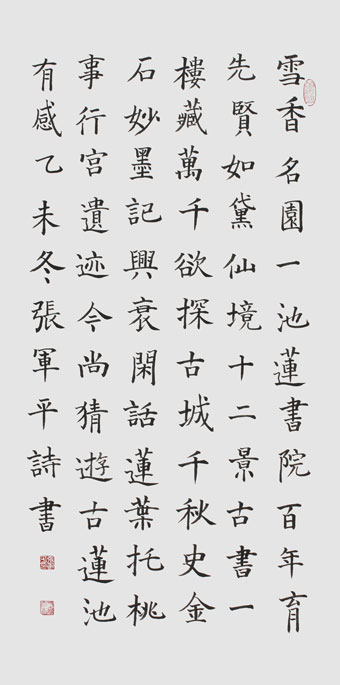 雪香名園一池蓮書院百年育
先賢如黛仙境十二景古書一
樓藏萬千欲探古城千秋史金
石妙墨記興衰閑話蓮葉托桃
事行宮遺迹今尚猜遊古蓮池
有感乙未冬張軍平詩書